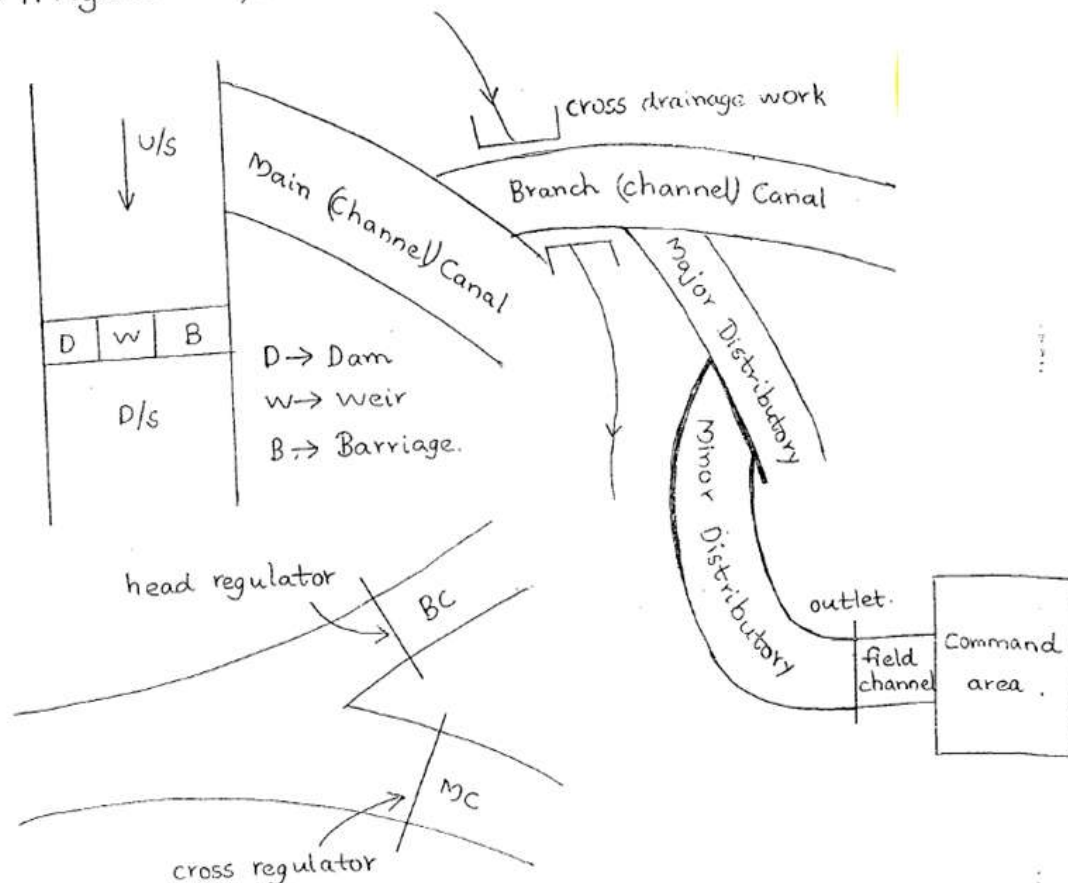 U/S
D W B
D/S
D→ Dam
W→ Weir
B→ Barriage.
Main (Channel) Canal
cross drainage work
Branch (channel) Canal
Major Distributory
Minor Distributory
outlet.
field
channel
Command
area.
head regulator
BC
MC
cross regulator